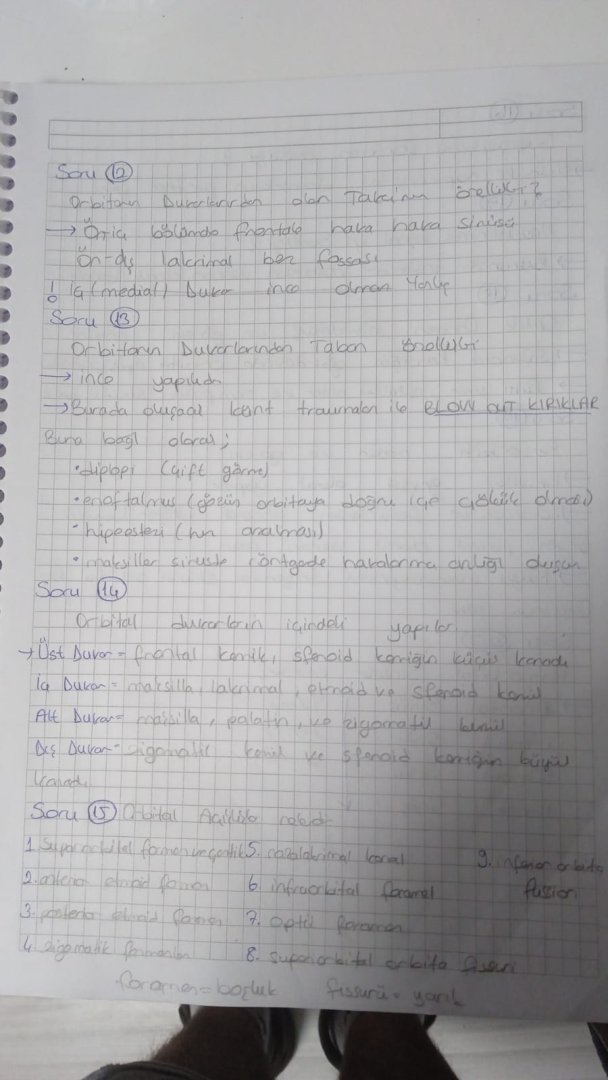 Soru 12
Orbitanın Duvarlarından olan Tavanın özelliği?
→ Ön iç bölümde frontale hava hava sinüsü
Ön-dış lakrimal bez fossası
! İç (medial) Duvar ince olması
Soru 13
Orbitanın Duvarlarından Taban özelliği
→ ince yapılıdır
→ Burada oluşacak künt travmaları ile BLOW OUT KIRIKLAR
Buna bağlı olarak;
• diplopi (çift görme)
• enoftalmus (gözün orbitaya doğru içe çökük olması)
• hipoestezi (his azalması)
• maksiller sinüste röntgende havalanma düşük
Soru 14
Orbital duvarların içindeki yapılar
→ Üst Duvar = frontal kemik, sfenoid kemiğin küçük kanadı
İç Duvar = maksilla, lakrimal, etmoid ve sfenoid kemik
Alt Duvar = maksilla, palatin, ve zigomatik kemik
Dış Duvar - zigomatik kemik ve sfenoid kemiğin büyük
kanadı
Soru 15 Orbital Açıklıklar
1. Supraorbital 5. nazolakrimal kanal 9. inferior orbita
2. anterior etmoid foramen 6. infraorbital foramel fissior
3. posterior etmoid foramen 7. optik foramen
4. zigomatik 8. superorbital orbita
foramen = boşluk fissürü = yarık